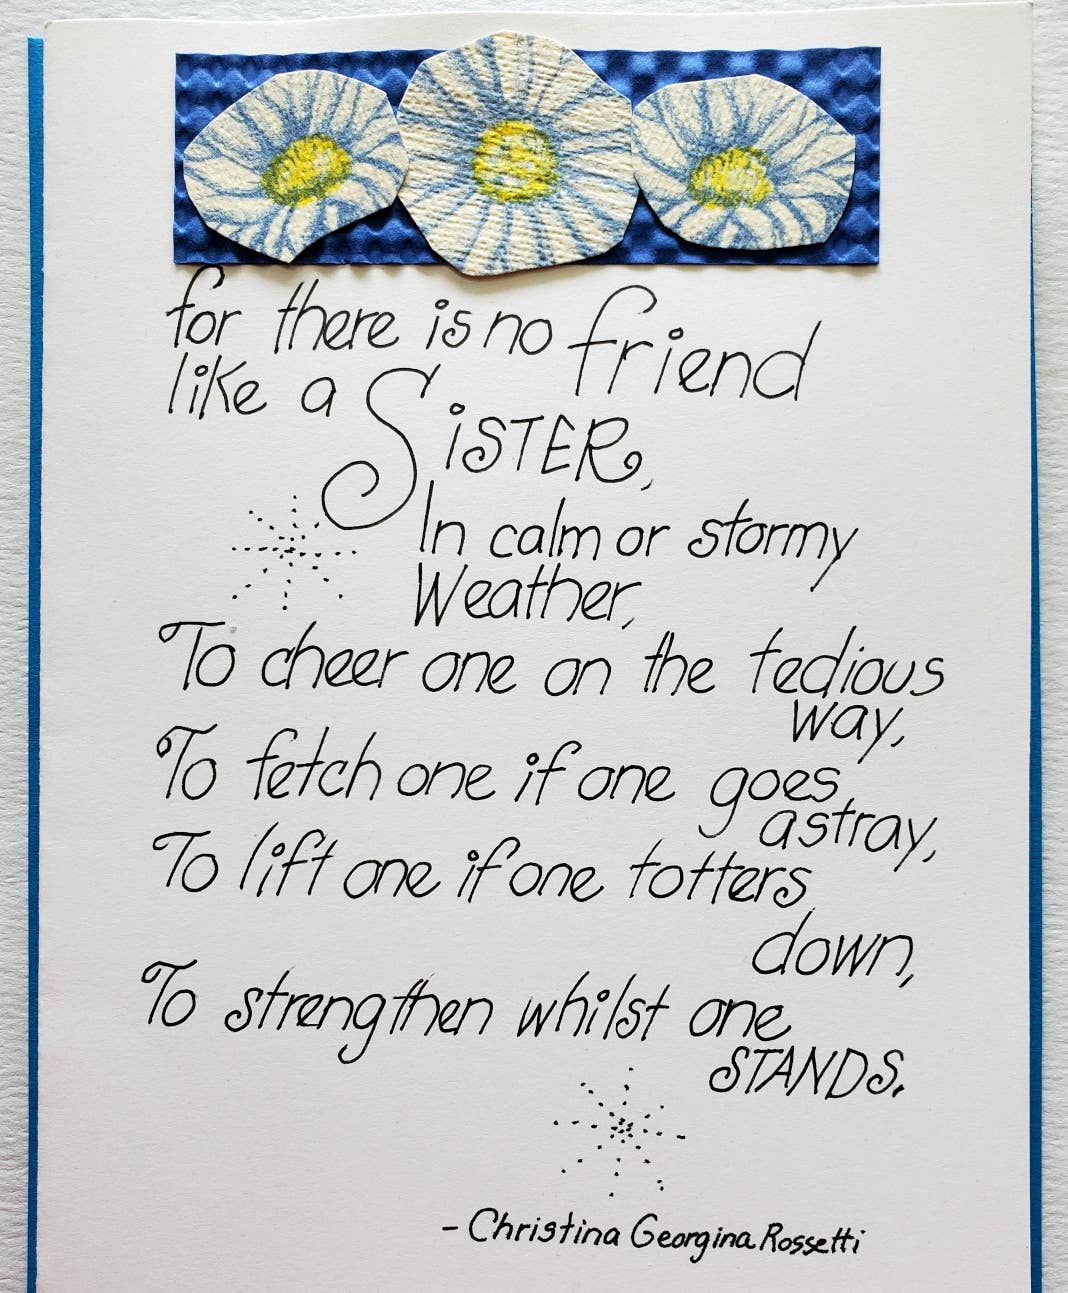 for there is no friend
like a SiSTER,
In calm or stormy
Weather,
To cheer one on the tedious
way,
To fetch one if one goes
astray,
To lift one if one totters
down,
To strengthen whilst one
STANDS.
- Christina Georgina Rossetti